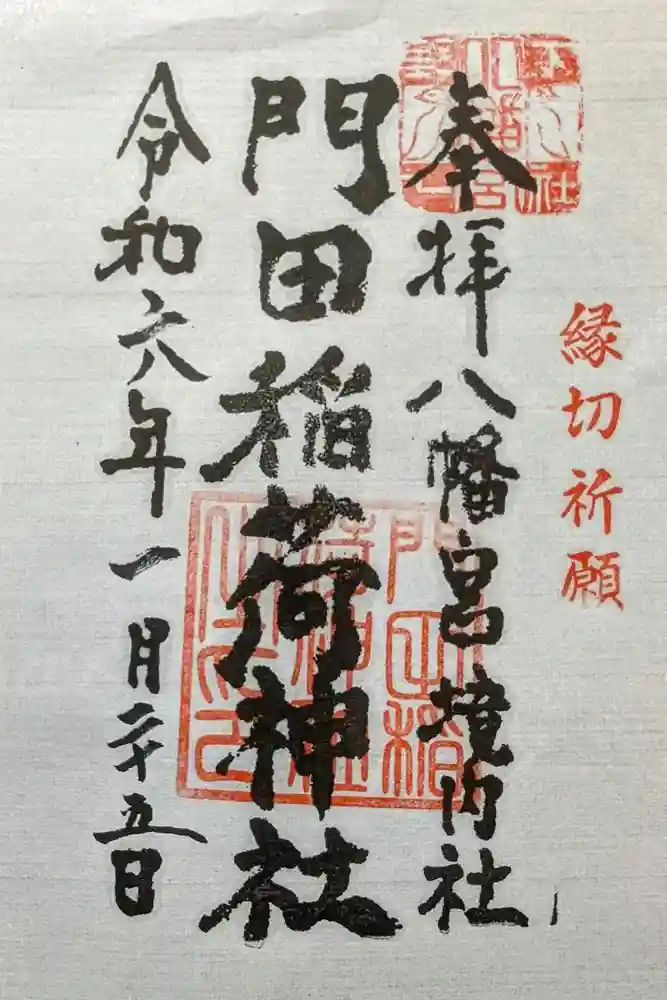 縁切祈願
奉拝八幡宮境内社
門田稲荷神社
令和六年一月二十五日